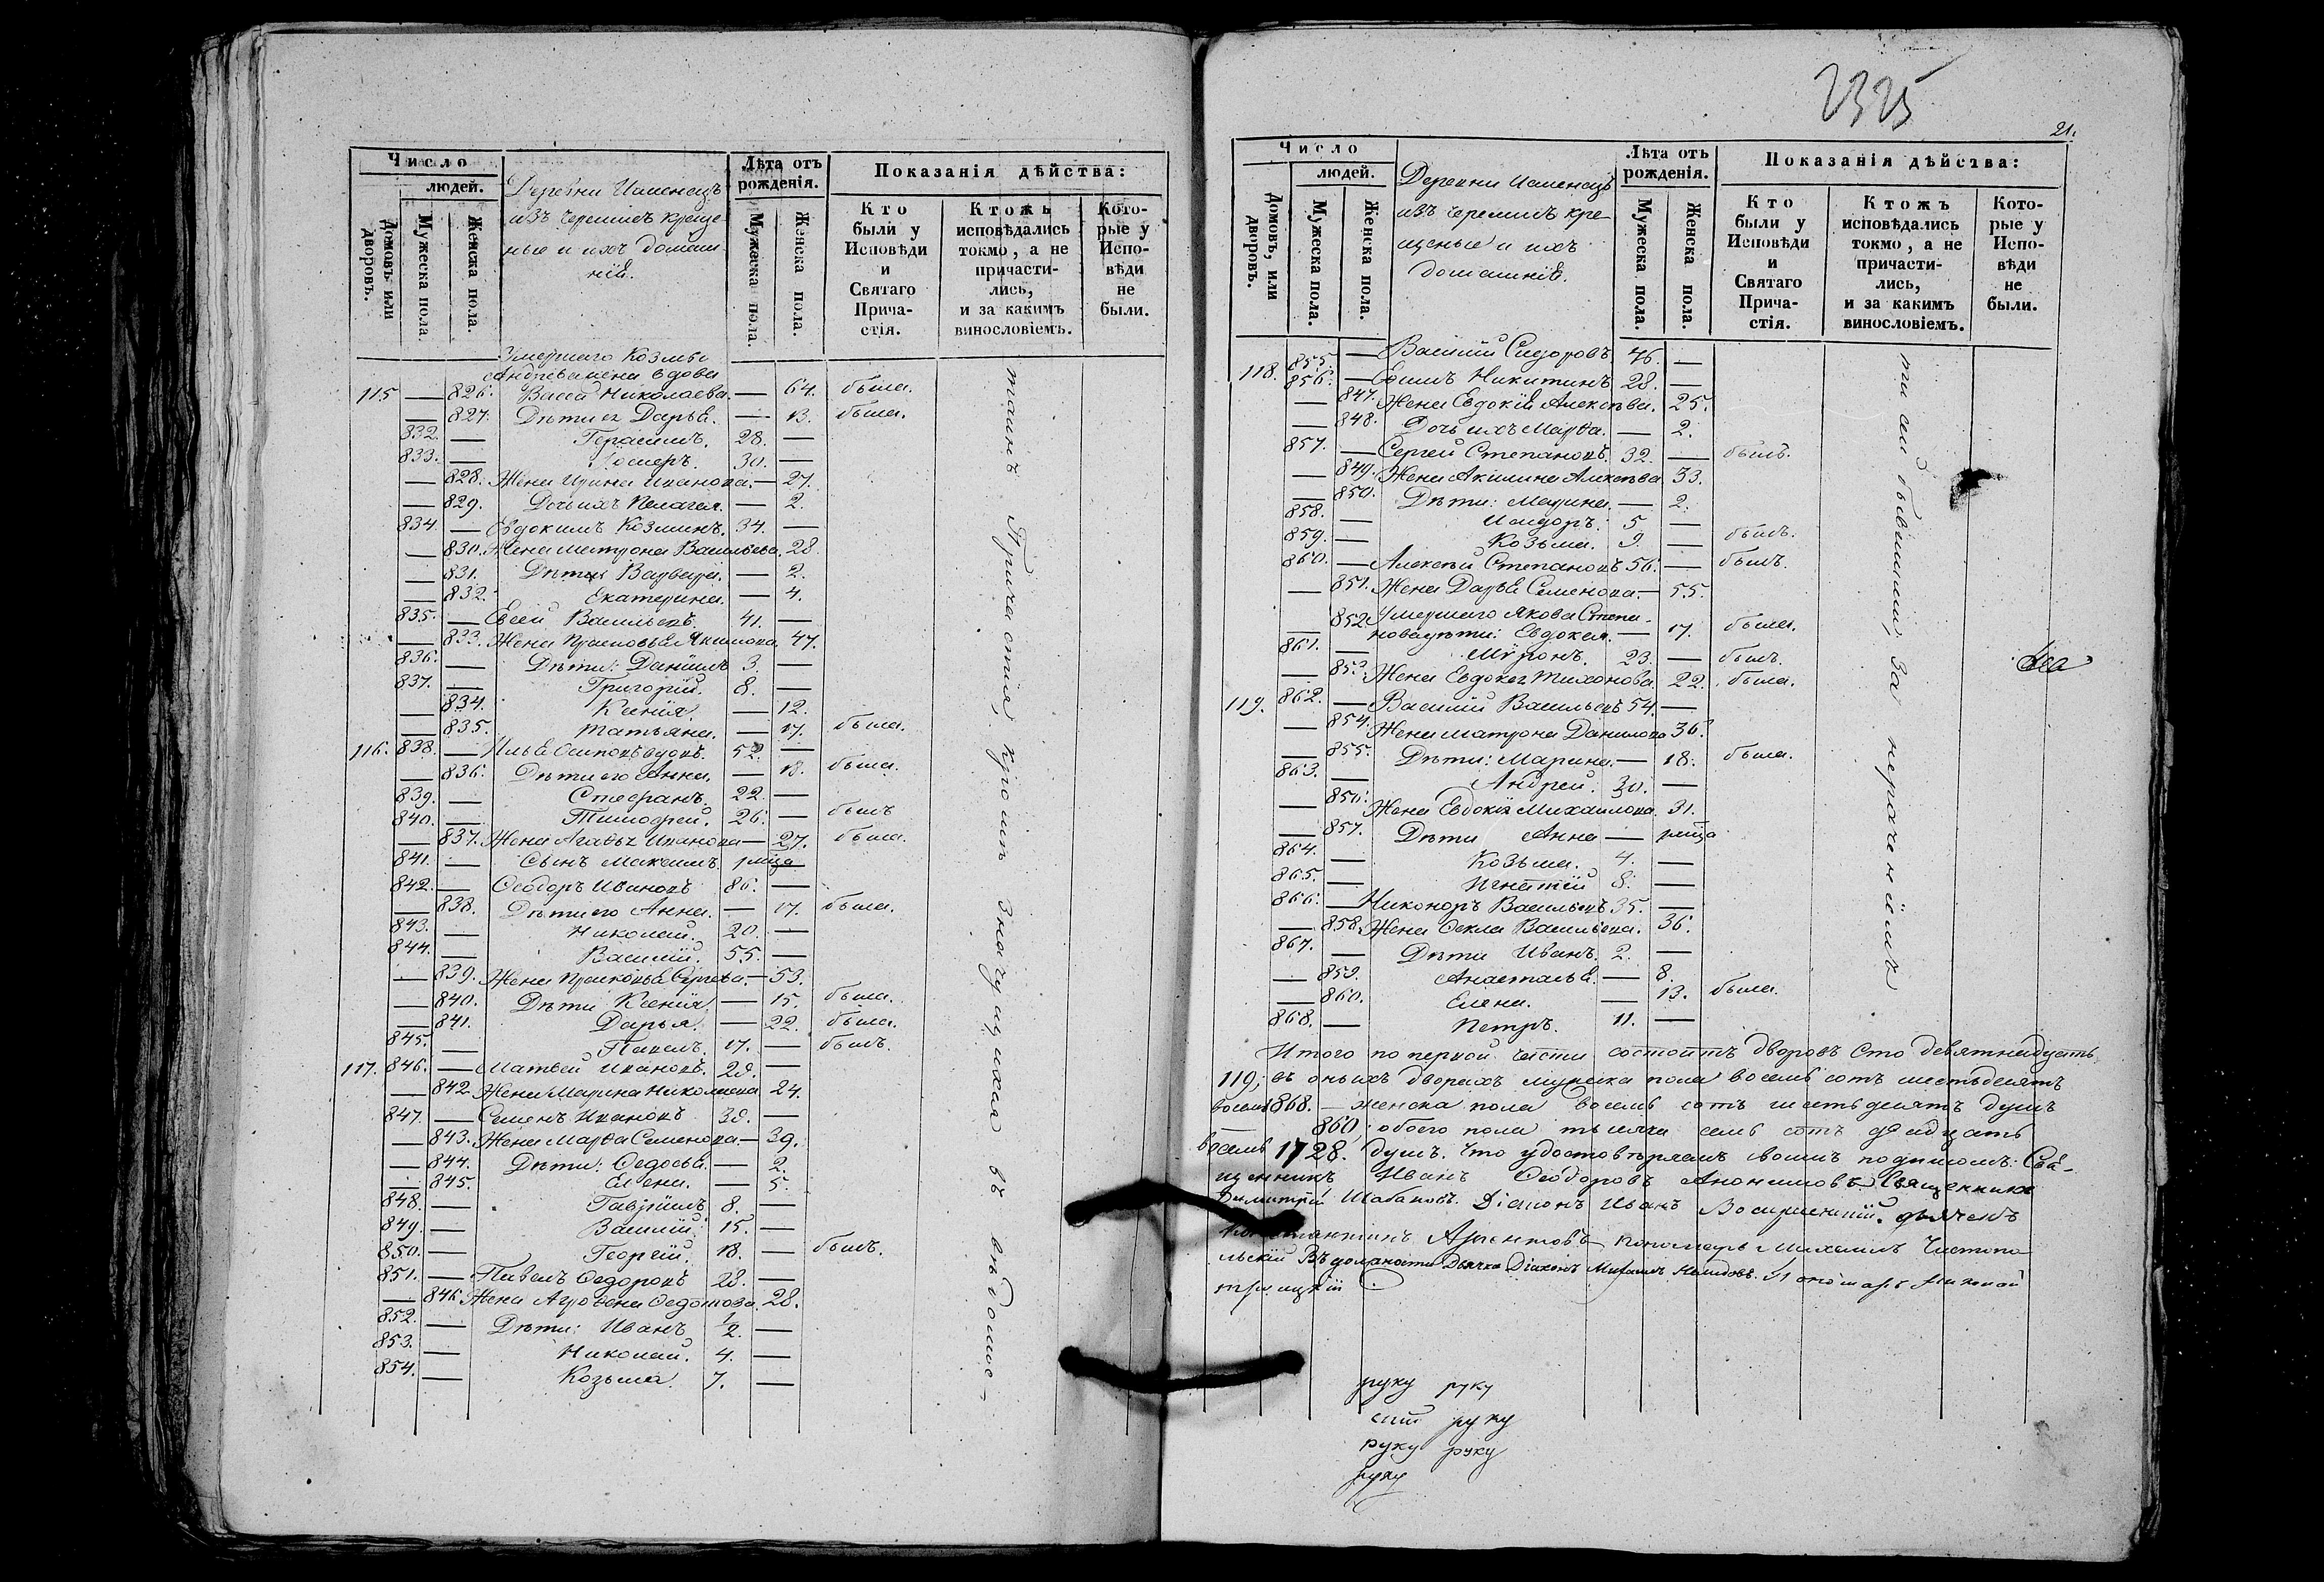 Число
людей.
Домовъ или дворовъ.
Мужеска пола
Женска пола.
Деревни
изъ черемисъ креще-
ные и ихъ домаш-
ніе.
Лѣта отъ рожденія.
Мужеска пола.
Женска пола.
Показанія дѣйства:
Кто были у Исповѣди и Святаго Прича-стія.
Ктожъ исповѣдались токмо, а не причасти-лись, и за какимъ винословіемъ.
Кото-рые у Испо-вѣди не были.
Умершаго Козмы
вдова
115 — 826. Васса Николаева. — 64. была.
— 827. Дѣти ея Дарья. — 13. была.
832. — Герасимъ. 28. —
833. — 30. —
— 828. Жена Ирина Иванова. — 27.
— 829. Дочь ихъ Пелагея. — 2.
834. — Евдокимъ Козминъ. 34. —
— 830. Жена Матрона Васильева. 28.
— 831. Дѣти Варвара. — 2.
— 832. Екатерина. — 4.
835. — Евсей Васильевъ. 41. —
— 833. Жена Прасковья Якимова. 47.
836. — Дѣти: Даніилъ 3. —
837. — Григорій. 8. —
— 834. Ксенія. — 12.
— 835. Татьяна. — 17. была.
116. 838. — Илья Осиповъ вдовъ. 52. —
— 836. Дѣти его Анна. — 18. была.
839. — Стефанъ. 22. —
840. — Тимофей. 26. — былъ
— 837. Жена Агафья Иванова — 27. была.
841. — Сынъ Максимъ. —
842. — Ѳеодоръ Ивановъ 86. —
— 838. Дѣти его Анна. — 17. была.
843. — Николай. 20. —
844. — Василій. 55. —
— 839. Жена Прасковья Сергѣева. — 53.
— 840. Дѣти Ксенія — 15. была.
— 841. Дарья. — 22. была.
845. — Павелъ. 17. — былъ.
117. 846. — Матвей Ивановъ. 29. —
— 842. Жена Марина Николаева 24.
847. — Семенъ Ивановъ 39. —
— 843. Жена Марѳа Семенова. — 39.
— 844. Дѣти: Ѳедосья. — 2.
— 845. Елена. — 5.
848. — Гавріилъ 8. —
849. — Василій. 15. —
850. — Георгій. 18. — былъ.
851. — Павелъ Ѳедоровъ 28. —
— 846. Жена Ѳедотова. 28.
852. — Дѣти: Иванъ 1/2. —
853. — Николай. 4. —
854. — Козьма. 7. —
таинъ Причастія, кромѣ значущихся въ вѣдомос-
2325
21.
Число
людей.
Домовъ, или дворовъ.
Мужеска пола.
Женска пола.
Деревни
изъ черемисъ кре-
щеные и ихъ
домашніе.
Лѣта отъ рожденія.
Мужеска пола.
Женска пола.
Показанія дѣйства:
Кто были у Исповѣди и Святаго Прича-стія.
Ктожъ исповѣдались токмо, а не причасти-лись, и за какимъ винословіемъ.
Кото-рые у Испо-вѣди не были.
118. 855. — Василій Сидоровъ 46. —
856. — Ефимъ Никитинъ 28. —
— 847. Жена Евдокія Алексѣева. 25.
— 848. Дочь ихъ Марѳа. — 2.
857. — Сергей Степановъ. 32. — былъ.
— 849. Жена Акилина Алексѣева 33.
— 850. Дѣти: Марина. — 2.
858. — Исидоръ. 5 —
859. — Козьма. 9. — былъ.
860. — Алексѣй Степановъ 56. — былъ.
— 851. Жена Дарья Семенова — 55.
Умершаго Якова Степа-
— 852. нова дѣти: Евдокея. — 17. была.
861. — Мѵронъ. 23. — былъ.
— 853. Жена Евдокея Тихонова. 22. была.
119. 862. — Василій Васильевъ 54. —
— 854. Жена Матрона Данилова 36.
— 855. Дѣти: Марина. — 18. была.
863. — Андрей. 30. —
— 856. Жена Евдокія Михаилова. 31.
— 857. Дѣти Анна —
864. — Козьма. 4. —
865. — Игнатій 8. —
866. — Никоноръ Васильевъ 35. —
— 858. Жена Ѳекла Васильева. 36.
867. — Дѣти Иванъ. 2. —
— 859. Анастасья. — 8.
— 860. Елена. — 13. была.
868. — Петръ. 11. —
ти сей бывшими, за нераченіемъ
Итого по первой части состоитъ дворовъ сто девятнадцать
119; въ оныхъ дворахъ мужска пола восемь сотъ шестьдесятъ
восемь 868. — женска пола восемь сотъ шестьдесятъ душъ
— 860; обоего пола тысяча семь сотъ двадцать
восемь 1728. душъ. Что удостовѣряемъ своимъ подписомъ: Свя-
щенникъ Иванъ Ѳеодоровъ Священникъ
Димитрій Шабановъ. Діаконъ Иванъ дьячекъ
Пономарь Михаилъ Чистопо-
льскій Дьячка Діаконъ Пономарь Николай
руку руку
сей руку
руку руку
руку